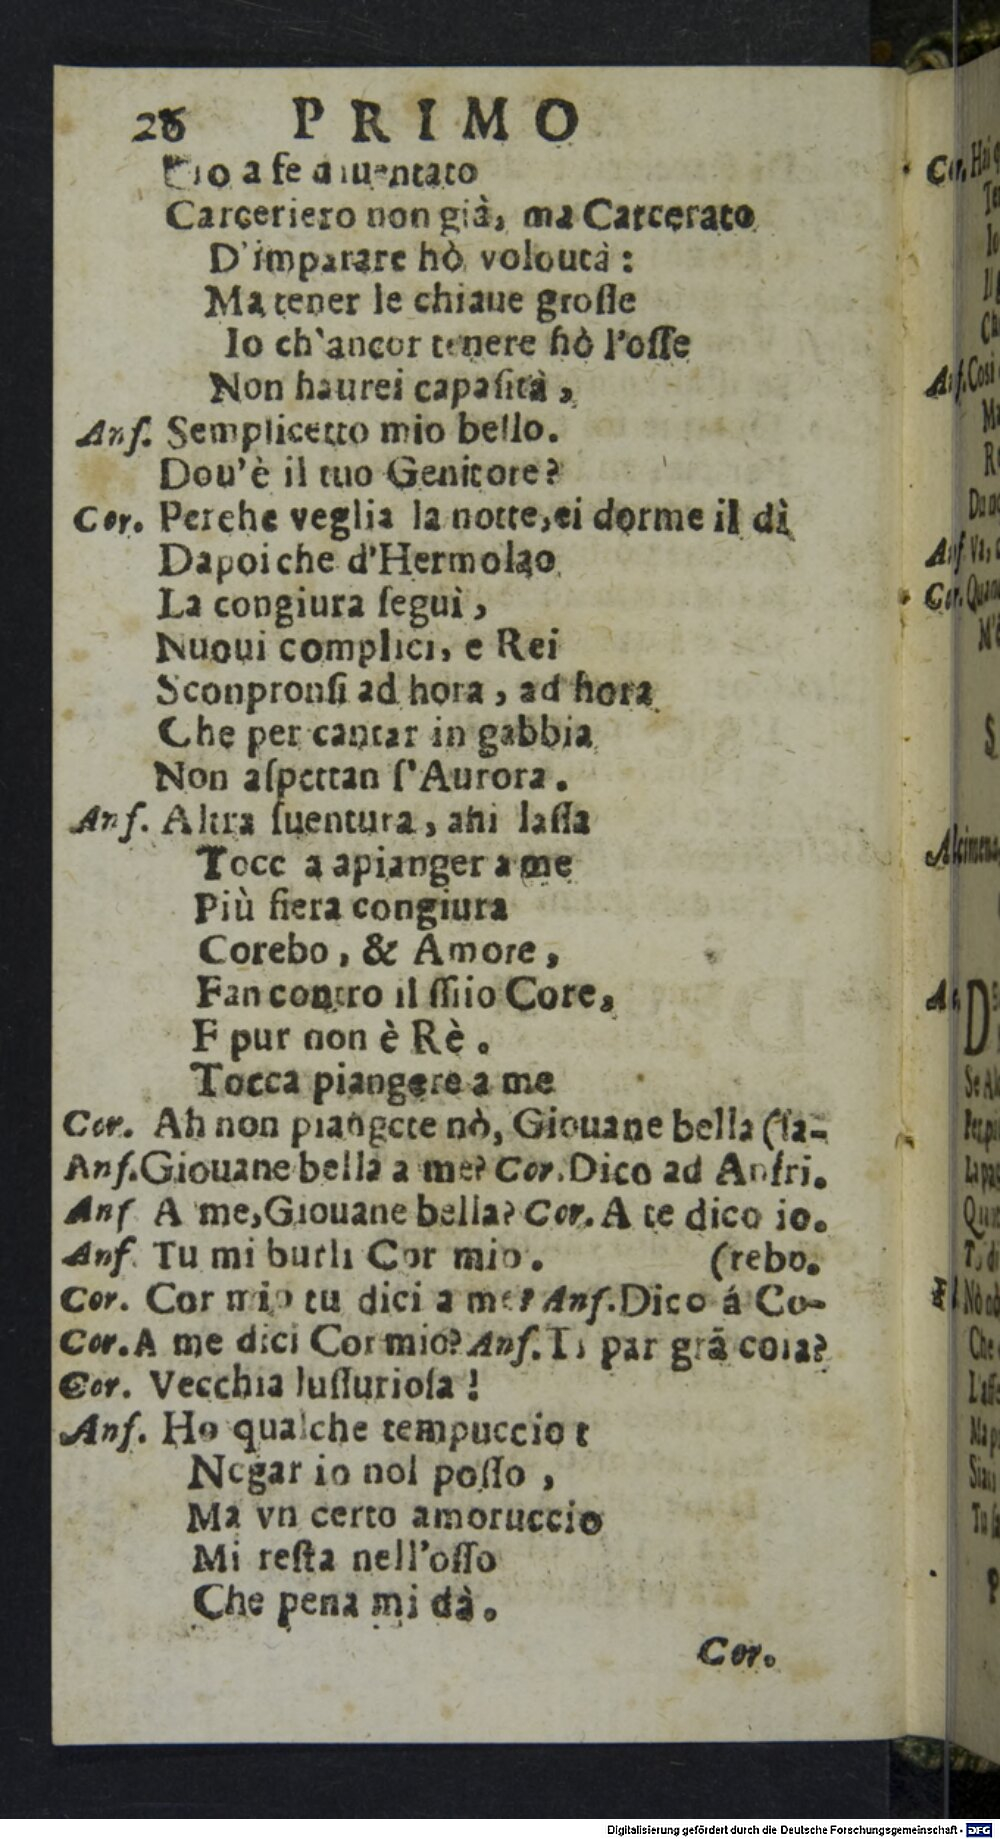 26 PRIMO
a fe
Carceriero non già, ma Carcerato
D'imparare hò voloutà :
Ma tener le chiaue groſſe
Io ch'ancor tenere hò l'oſſe
Non haurei capaſità ,
Anſ. Semplicetto mio bello.
Dou'è il tuo Genitore?
Cor. Perche veglia la notte, ei dorme il dì
Dapoiche d'Hermolao
La congiura ſeguì ,
Nuoui complici, e Rei
Sconpronſi ad hora , ad hora
Che per cantar in gabbia
Non aſpettan l'Aurora .
Anſ. Altra ſuentura , ahi laſſa
Tocc a apianger a me
Più fiera congiura
Corebo , & Amore ,
Fan contro il Core,
E pur non è Rè .
Tocca piangere a me
Cor. Ah non piangete nò, Giouane bella (ſa-
Anſ. Giouane bella a me? Cor. Dico ad Anfri.
Anſ A me, Giouane bella? Cor. A te dico io.
Anſ. Tu mi burli Cor mio . (rebo.
Cor. Cor mio tu dici a me? Anſ. Dico á Co-
Cor. A me dici Cor mio? Anſ. Ti par grã coſa?
Cor. Vecchia luſſurioſa !
Anſ. Ho qualche tempuccio t
Negar io nol poſſo ,
Ma vn certo amoruccio
Mi reſta nell'oſſo
Che pena mi dà .
Cor.
Digitalisierung gefördert durch die Deutsche Forschungsgemeinschaft - DFG